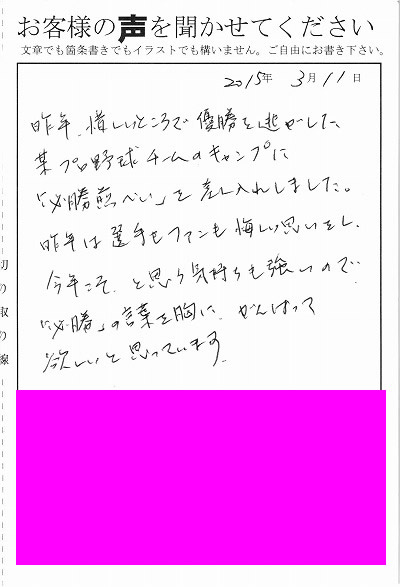 お客様の声を聞かせてください
文章でも箇条書きでもイラストでも構いません。ご自由にお書き下さい。
2015年 3月11日
昨年、惜しいところで優勝を逃がした
某プロ野球チームのキャンプに
「必勝煎べい」を差し入れしました。
昨年は選手もファンも悔しい思いをし、
今年こそ、と思う気持ちも強いので、
「必勝」の言葉を胸に、がんばって
欲しいと思っています。
切り取り線